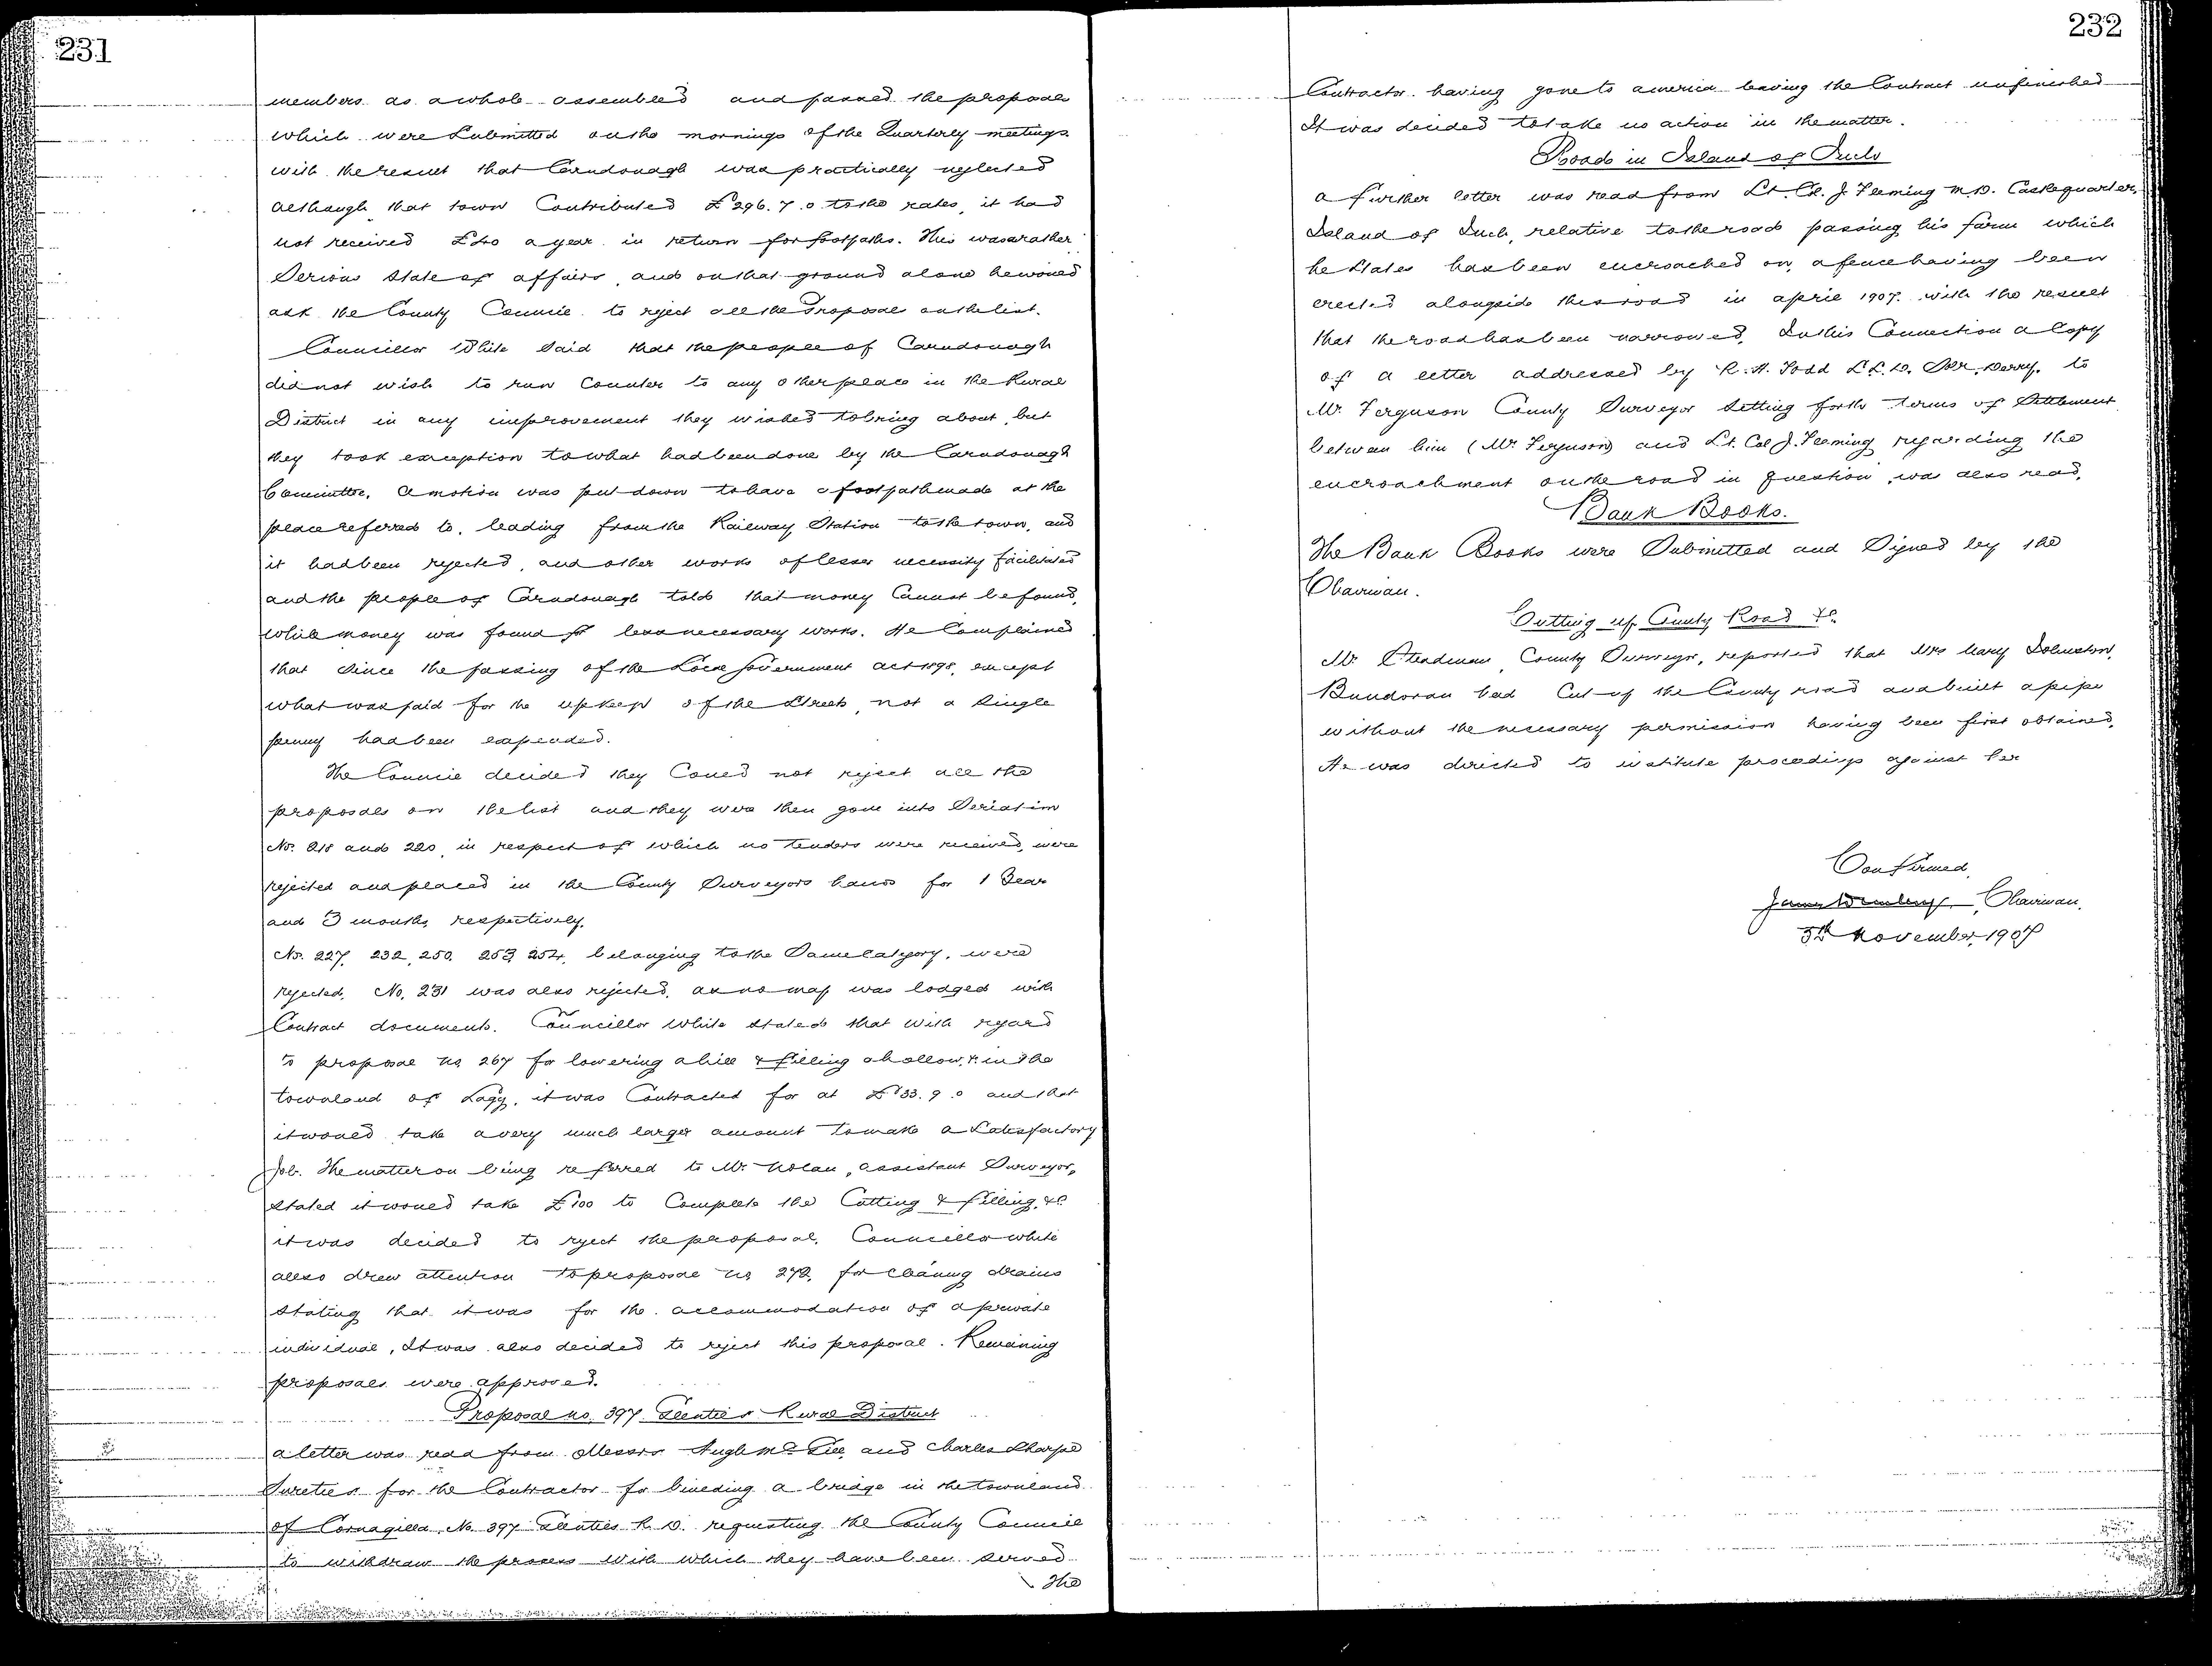 231
members as a whole assembled and passed the proposals
which were Submitted on the mornings of the Quarterly meetings
with the result that Carndonagh was practically neglected
although that town Contributed £296.7.0 to the rates, it had
not received £40 a year in return for footpaths. This was a rather
Serious State of affairs, and on that ground alone he would
ask the County Council to reject all the Proposals on the list.
Councillor White Said that the people of Carndonagh
did not wish to run Counter to any other place in the Rural
District in any improvement they wished to bring about, but
they took exception to what had been done by the Carndonagh
Committee. A motion was put down to have a footpath made at the
place referred to, leading from the Railway Station to the town, and
it had been rejected, and other works of lesser necessity facilitated
and the people of Carndonagh told that money Cannot be found,
while money was found for less necessary works. He Complained
that Since the passing of the Local Government Act 1898, except
what was paid for the upkeep of the Streets, not a Single
penny had been expended.
The Council decided they Could not reject all the
proposals on the list and they were then gone into Seriatim
No. 218 and 220, in respect of which no tenders were received, were
rejected and placed in the County Surveyors hands for 1 Year
and 3 months, respectively.
No. 227, 232, 250, 253, 254, belonging to the Same Category, were
rejected. No. 231 was also rejected, as no map was lodged with
Contract documents. Councillor White stated that with regard
to proposal No. 267 for lowering a hill & filling a hollow, &c in the
townland of Lagg, it was Contracted for at £33.9.0 and that
it would take a very much larger amount to make a Satisfactory
Job. The matter on being referred to Mr. Nolan, Assistant Surveyor,
Stated it would take £100 to Complete the Cutting & filling, &c.
it was decided to reject the proposal. Councillor White
also drew attention to proposal No. 272, for cleaning drains
Stating that it was for the accommodation of a private
individual, It was also decided to reject this proposal. Remaining
proposals were approved.
Proposal No. 397 Glenties Rural District
A letter was read from Messrs Hugh McGill, and Charles Sharpe
Sureties for the Contractor for building a bridge in the townland
of Cornagilla, No. 397 Glenties R. D. requesting the County Council
to withdraw the process with which they have been served
The
232
Contractor having gone to America leaving the Contract unfinished
It was decided to take no action in the matter.
Roads in Island of Inch
A further letter was read from Lt. Col. J. Fleming M.D. Castlequarter,
Island of Inch, relative to the road passing his farm which
he States has been encroached on, a fence having been
erected alongside this road in April 1907. with the result
that the road has been narrowed. In this Connection a Copy
of a letter addressed by R. H. Todd L.L.D. Solr. Derry, to
Mr. Ferguson County Surveyor Setting forth terms of Settlement
between him (Mr. Ferguson) and Lt. Col J. Fleming regarding the
encroachment on the road in question, was also read.
Bank Books.
The Bank Books were Submitted and Signed by the
Chairman.
Cutting up County Road &c.
Mr. Steadman, County Surveyor, reported that Mrs Mary Johnston,
Bundoran had Cut up the County road and built a pipe
without the necessary permission having been first obtained.
He was directed to institute proceedings against her
Confirmed,
Chairman.
5th November, 1907